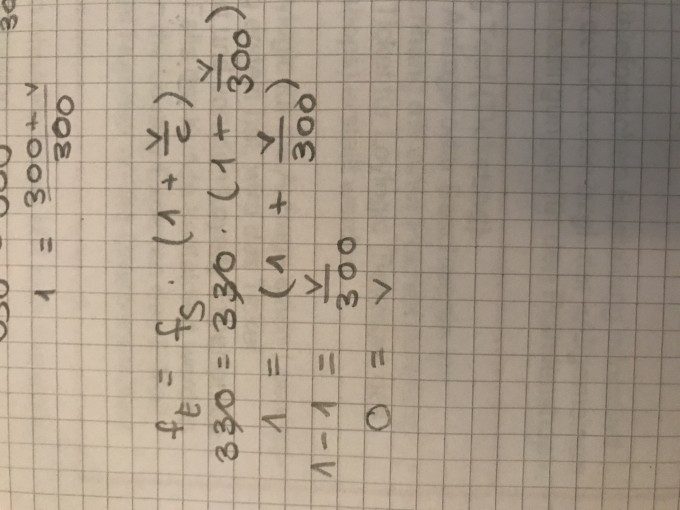 1 = \frac{300+v}{300}
f_t = f_s · (1 + \frac{v}{c})
330 = 330 · (1 + \frac{v}{300})
1 = (1 + \frac{v}{300})
1-1 = \frac{v}{300}
0 = v